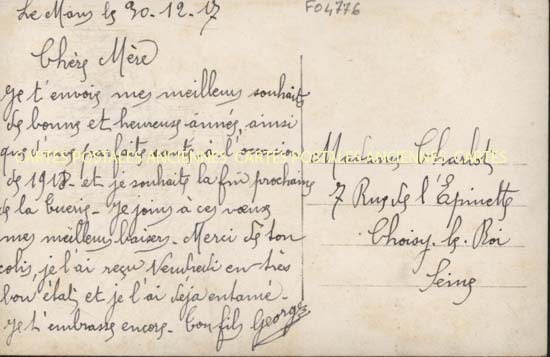 F04776
Le Mans le 30-12-17
Chère Mère
Je t'envois mes meilleurs souhaits
de bonne et heureuse année, ainsi
que d'une parfaite santé à l'
de 1918 - et je souhaite la fin prochaine
de la Guerre - Je joins à ces vœux
mes meilleurs baisers - Merci de ton
colis, je l'ai reçu Vendredi en très
bon état, et je l'ai deja entamé -
Je t'embrasse encore - Ton fils George
Madame Charlot
7 Rue de l'Epinette
Choisy-le-Roi
Seine
CARTES POSTALES ANCIENNES CARTES POSTALES ANCIENNES CARTES